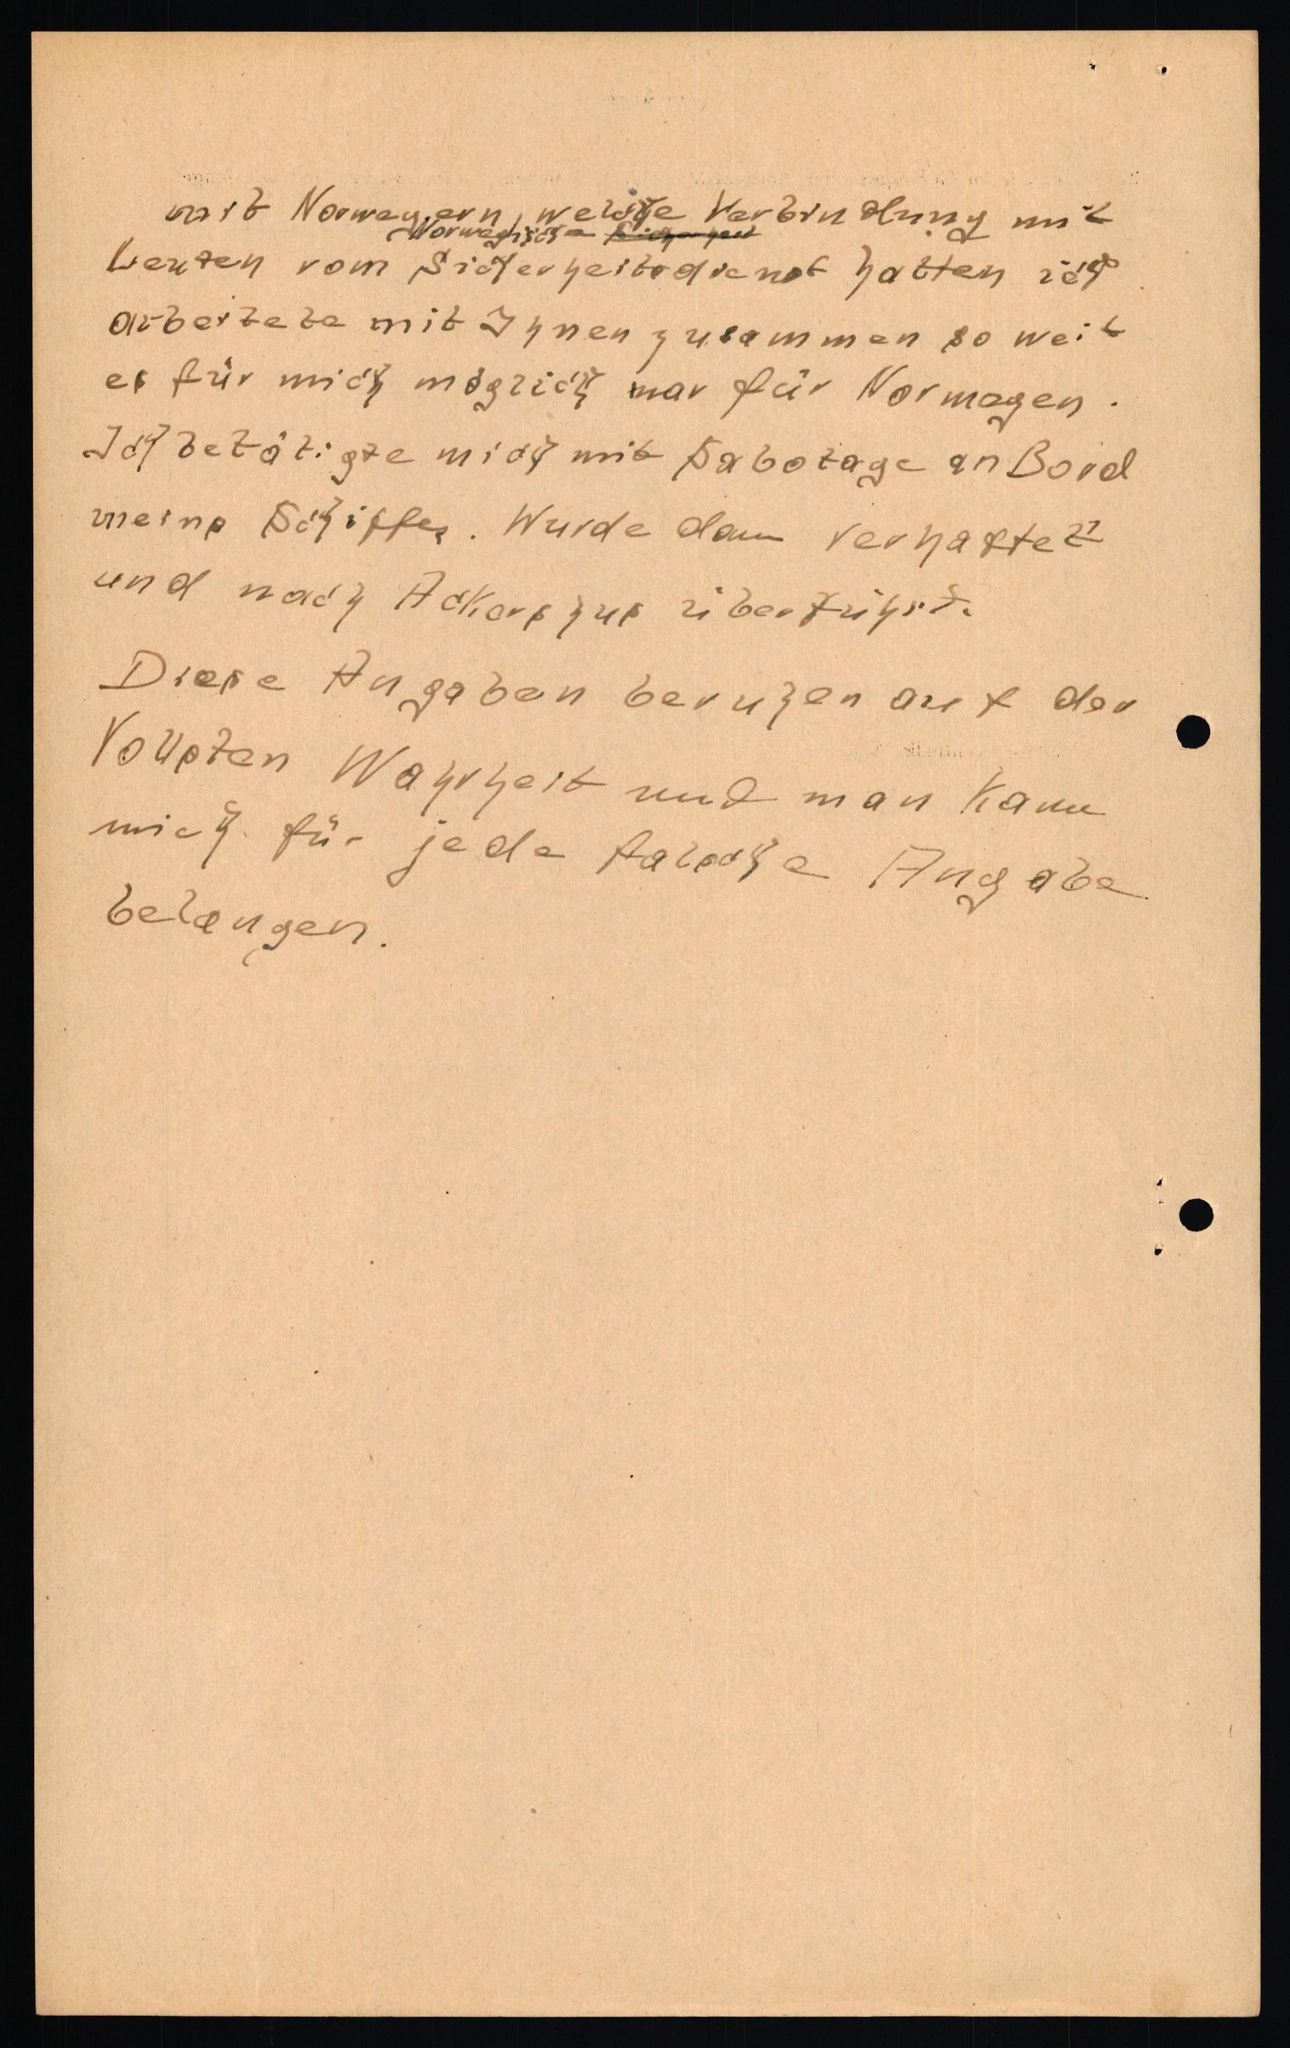 mit Norwegern, welche Verbindung mit
Norwegische
Leuten vom Sicherheitsdienst hatten ich
arbeitete mit Ihnen zusammen so weit
es für mich möglich war für Norwegen.
Ich betätigte mich mit Sabotage an Bord
meins Schiffes. Wurde dann verhaftet
und nach Ackershus überführt.
Diese Angaben beruhen auf der
Vollsten Wahrheit und man kann
mich für jede falsche Angabe
belangen.